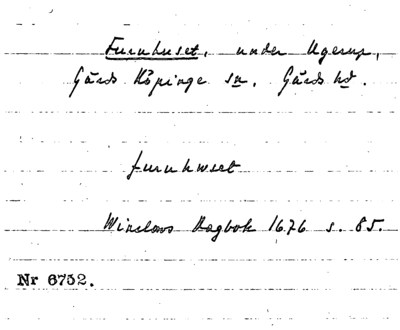 Furuhuset, under Ugerup,
Gärds Köpinge sn. Gärds hd.
furuhwset
Winslows Dagbok 1676 s. 85.
Nr 6752.